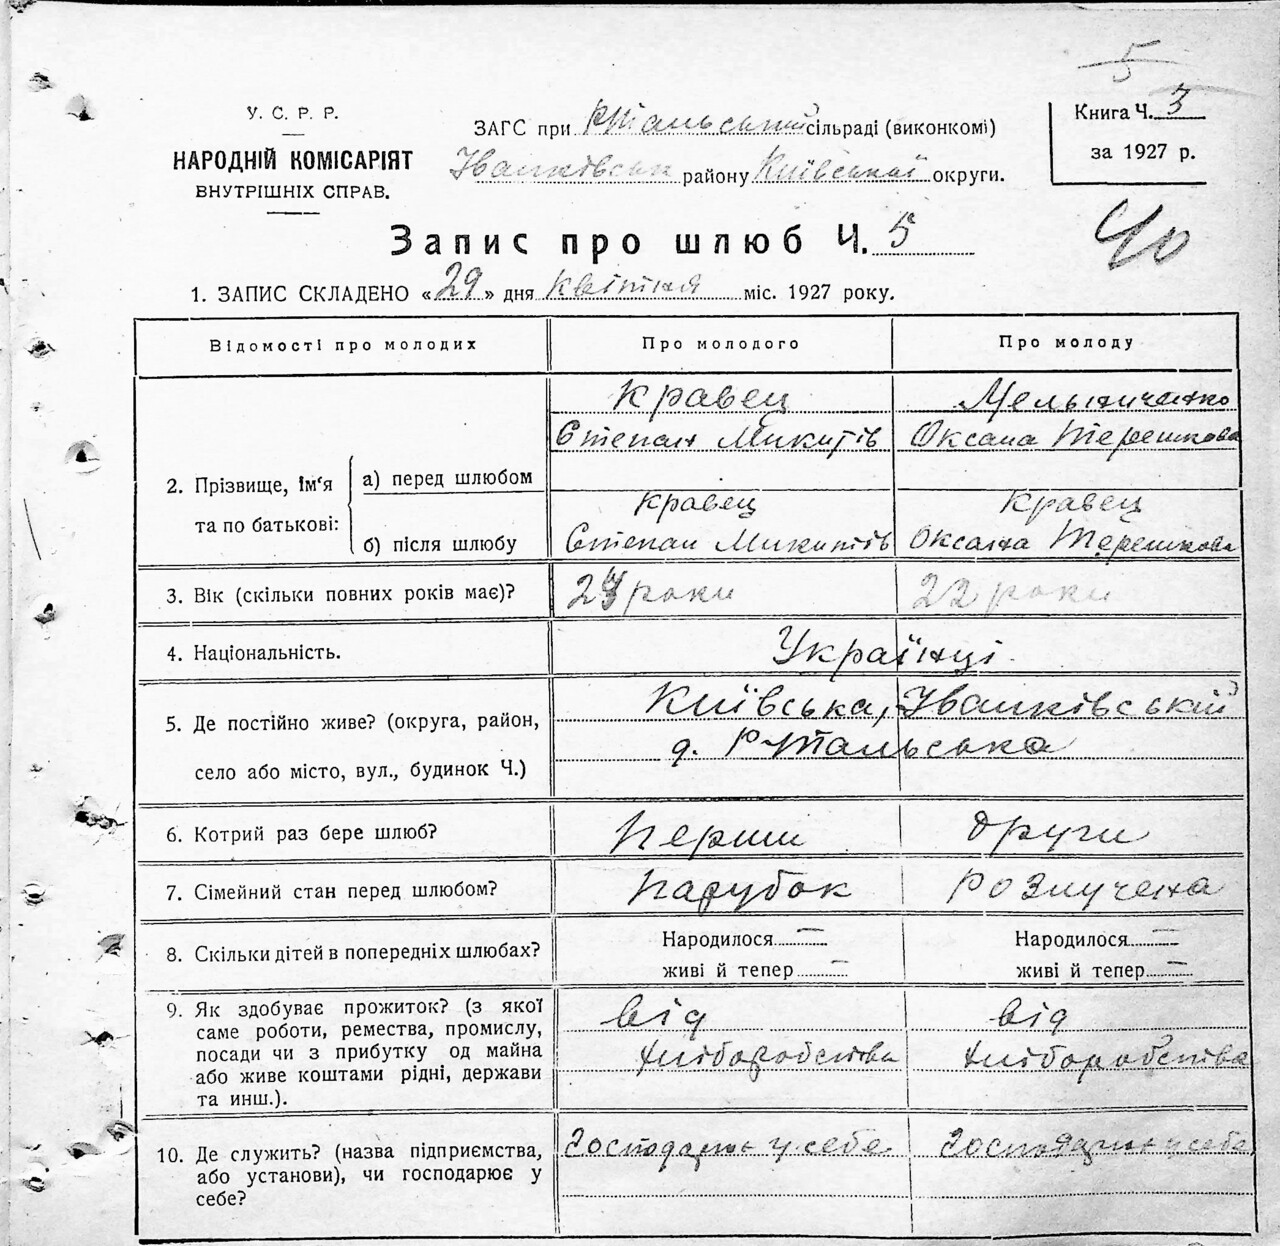 5
У. С. Р. Р.
НАРОДНІЙ КОМІСАРІЯТ
ВНУТРІШНІХ СПРАВ.
ЗАГС при сільраді (виконкомі)
Іванківськ району Київської округи.
Книга Ч. 3
за 1927 р.
40
Запис про шлюб Ч. 5
1. ЗАПИС СКЛАДЕНО «29» дня квітня міс. 1927 року.
Відомості про молодих Про молодого Про молоду
Кравец Мельниченко
Степан Микитів Оксана Терешкова
2. Прізвище, ім'я та по батькові: а) перед шлюбом
Кравец Кравец
б) після шлюбу Степан Микитів Оксана Терешкова
3. Вік (скільки повних років має)? 24 роки 22 роки
4. Національність. Українці
5. Де постійно живе? (округа, район, Київська, Іванківській
село або місто, вул., будинок Ч.) д.
6. Котрий раз бере шлюб? Перши други
7. Сімейний стан перед шлюбом? парубок Розлучена
8. Скільки дітей в попередніх шлюбах? Народилося — Народилося —
живі й тепер — живі й тепер —
9. Як здобуває прожиток? (з якої від від
саме роботи, ремества, промислу,
посади чи з прибутку од майна хліборобства хліборобства
або живе коштами рідні, держави
та инш.).
10. Де служить? (назва підприємства, у себе у себе
або установи), чи господарює у
себе?